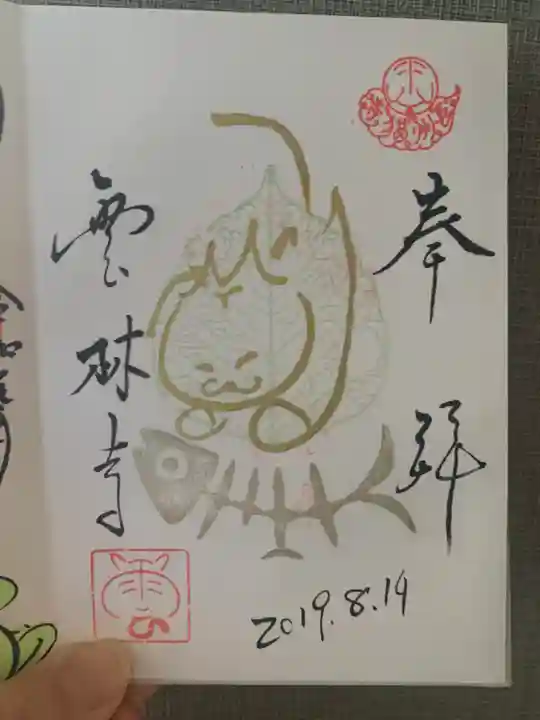 奉拝
雲林寺
2019.8.14